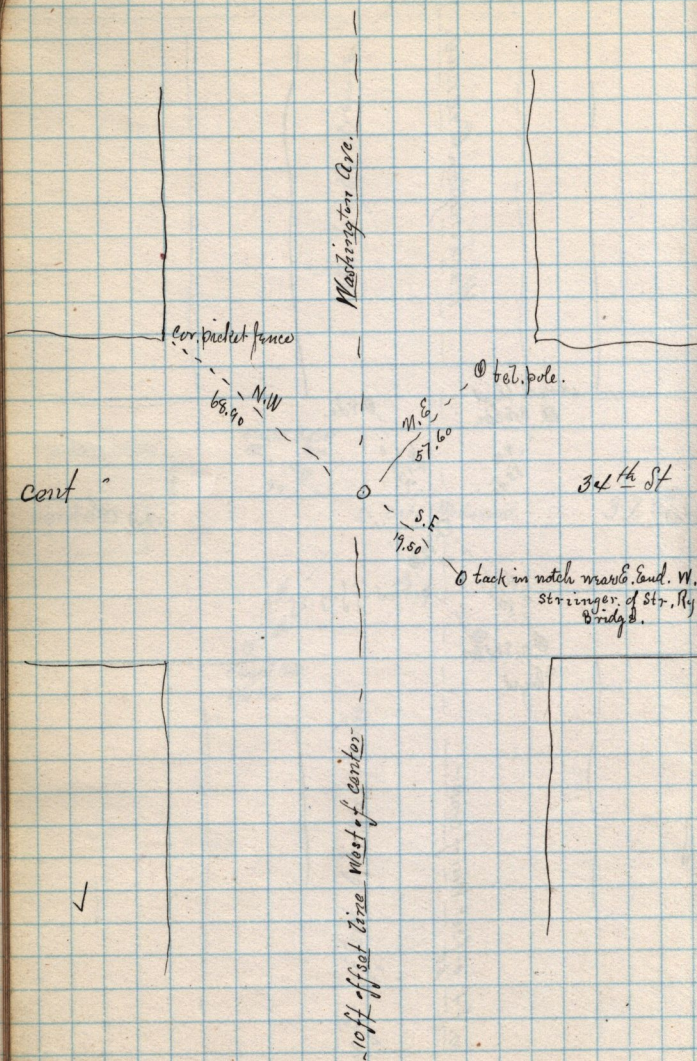 Washington Ave.
cor. picket fence
N.W
68.90
tel. pole.
N.E
57.60
cent
34th St
S.E
19.50
tack in notch near E. End. W.
striinger. of Str. Ry
Bridge.
10 ft offset line West of center